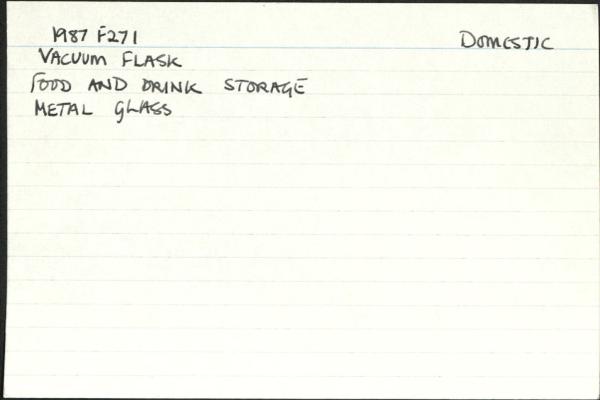 1987 F271 DOMESTIC
VACUUM FLASK
FOOD AND DRINK STORAGE
METAL GLASS